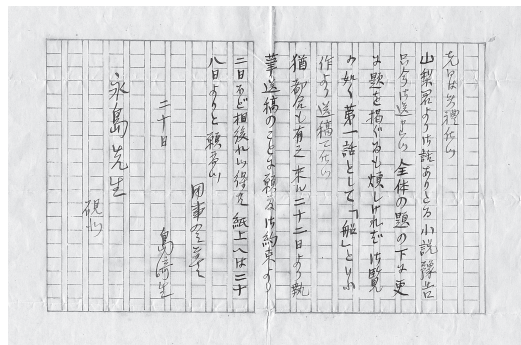 先日は失禮仕候
山梨君より御話ありたる小説豫告
只今御送申上候 全体の題の下に更
に題を掲ぐるも煩しければ御覧
の如く第一話として「船」といふ小
作より送稿可仕候
猶都合も有之 来る二十二日より執
筆送稿のことに願度 御約束より
二日ほど相後れ候得共 紙上へは二十
八日よりと願度候
用事のみ 草々
二十日
島崎生
永島先生
硯北